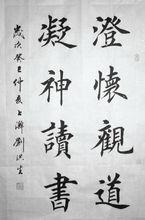 澄懷觀道
凝神讀書
歲次癸巳仲夏上澣劉洪生